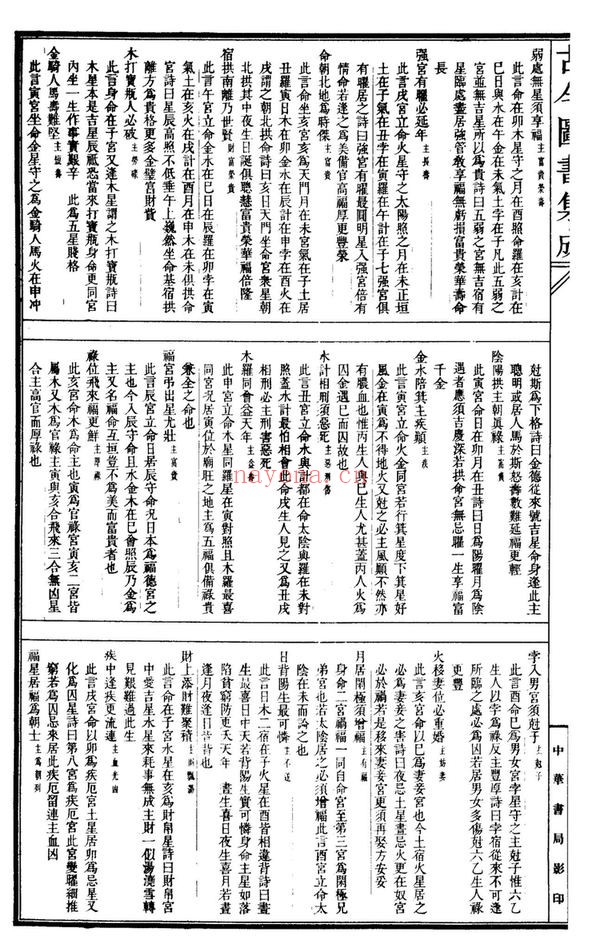 古今圖書集成
弱處無星須享福 主富貴榮壽
此言命在卯木星守之月在酉照命羅在亥計在
巳日與水在午金在未氣在申孛土在子凡此五弱之
宮並無吉星所以爲貴詩曰五弱之宮無吉宿有
星臨處盡居強管敎享福無虧損富貴榮華壽命
長
强宮有曜必延年 主長壽
此言戌宮立命火星守之太陽照之月在未正垣
土在子氣在丑孛在寅羅在午計在子七强宮俱
有曜居之詩曰强宮有曜最圓明星入强宮倍有
情命若逢之爲美備官高福厚更豐榮
命朝北地爲時傑 主富貴
此言命坐亥宮亥爲天門月在未宮氣在子土居
丑羅寅日木在卯金水在辰計在申孛在酉火在
戌謂之朝北拱詩曰亥日天門坐命宮衆星朝
北拱其中夜生日誕俱聰慧富貴榮華福倍隆
宿拱南離乃世賢 財富榮貴
此言午宮立命金水在巳日在辰羅在卯孛在寅
氣土在亥火在戌計在酉月在申木在未俱拱命
宮詩曰星辰高照不低垂午上巍然坐命基宿拱
離方爲貴格更多金璧富財貲
木打寶瓶人必破 主勞碌
此言身命在子宮又逢木星謂之木打寶瓶詩曰
木星本是吉星辰祗恐當來打寶瓶身命更同宮
內坐一生作事實艱辛　此爲五星賤格
金騎人馬壽難堅 主傷壽
此言寅宮坐命金星守之爲金騎人馬火在申冲
尅斯爲下格詩曰金德從來號吉星命身逢此主
聰明或居人馬於斯怒壽數難延福更輕
陰陽拱主朝眞祿 主富貴
此寅宮命日在卯月在丑詩曰日爲陽曜月爲陰
遇者應須吉慶深若拱命宮無忌曜一生享福富
千金
金水陪箕主疾顚 主疾
此言寅宮立命火金同宮若行箕星度下箕星好
風金在寅爲不得地火又尅之必主風顚不然亦
有膿血也惟丙生人與巳生人尤甚蓋丙人火爲
囚金遇巳而囚故也
水計相刑須惡死 主惡刑傷
此言丑宮立命水與計都在命太陰與羅在未對
照蓋水計最怕相會此命戌生人見之又爲丑戌
相刑必主刑害惡死
木羅同會益天年 主益壽
此申宮立命木星同羅星在寅對照且木羅最喜
同宮况居寅位於廟旺之地主爲五福俱備祿貴
兼全之命也
福宮弔出星尤壯 主富貴
此言辰宮立命日居辰守命况日本爲福德宮之
主也今入辰守命且水金木在巳會照辰乃金爲
主又名福命互垣豈不爲美而富貴者也
祿位飛來福更鮮 主厚祿
此亥宮命木爲命主也寅爲官祿宮寅亥二宮皆
屬木又木爲官祿主寅與亥合飛來三合無凶星
合主高官而厚祿也
孛入男宮須尅子 主尅子
此言酉命巳爲男女宮孛星守之主尅子惟六乙
生人以孛爲祿反主豐厚詩曰孛宿從來不可逢
所臨之處必爲凶若居男女多傷尅六乙生人祿
更豐
火移妻位必重婚 主妨妻
此言亥宮命以巳爲妻妾宮也今土宿火星居之
必爲妻妾之害詩曰夜忌土星晝忌火更在奴宮
必於禍若是移來妻妾宮更須再娶方安妥
月居閑極須增福 主有福
身命二宮禍福一同自命宮至第三宮爲閑極兄
弟宮也若太陰居之必須增福此言酉宮立命太
陰在未而論之也
日背陽生最可憐 主不足
此言日木二宿在子火星在酉皆相違背詩曰晝
生最喜日中天若背陽生實可憐身命主星如落
陷貧窮防更夭天年　晝生喜日夜生喜月若晝
逢月夜逢日皆背也
財上添財難聚積
此言命在子宮水星在亥爲財帛星詩曰財帛宮
中愛吉星水星來耗事無成主財一似湯澆雪轉
見艱難過此生
疾中逢疾更流連 主血光凶
此言戌宮命以卯爲疾厄宮土星居卯爲忌星又
化爲囚星詩曰第八宮爲疾厄宮此宮變曜細推
窮若爲囚忌來居此疾厄留連主血凶
福星居福爲朝士 主爲朝列
中華書局影印
nayona.cn